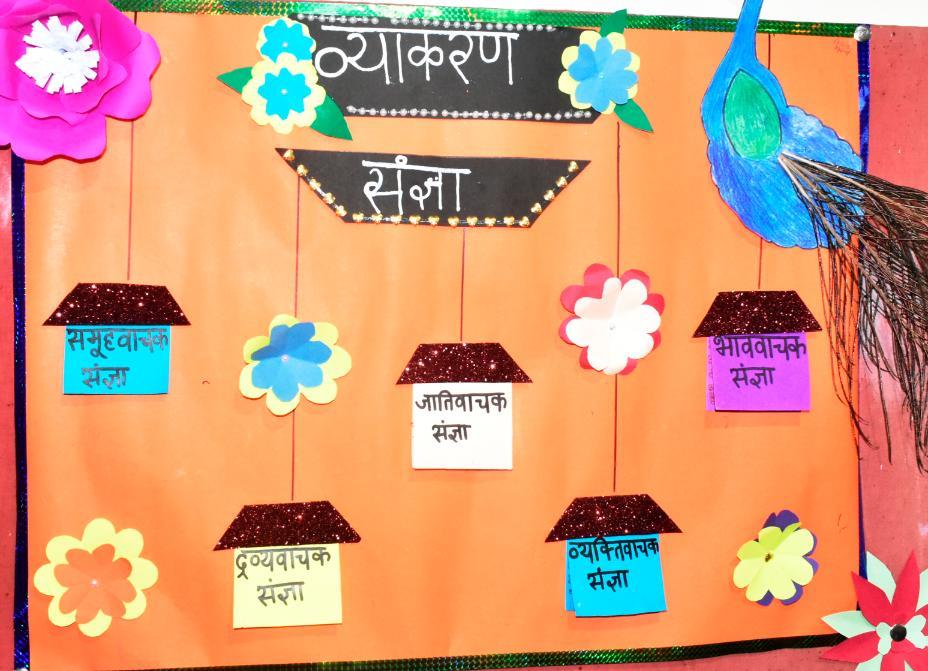 व्याकरण
संज्ञा
समूहवाचक
संज्ञा
जातिवाचक
संज्ञा
भाववाचक
संज्ञा
द्रव्यवाचक
संज्ञा
व्यक्तिवाचक
संज्ञा